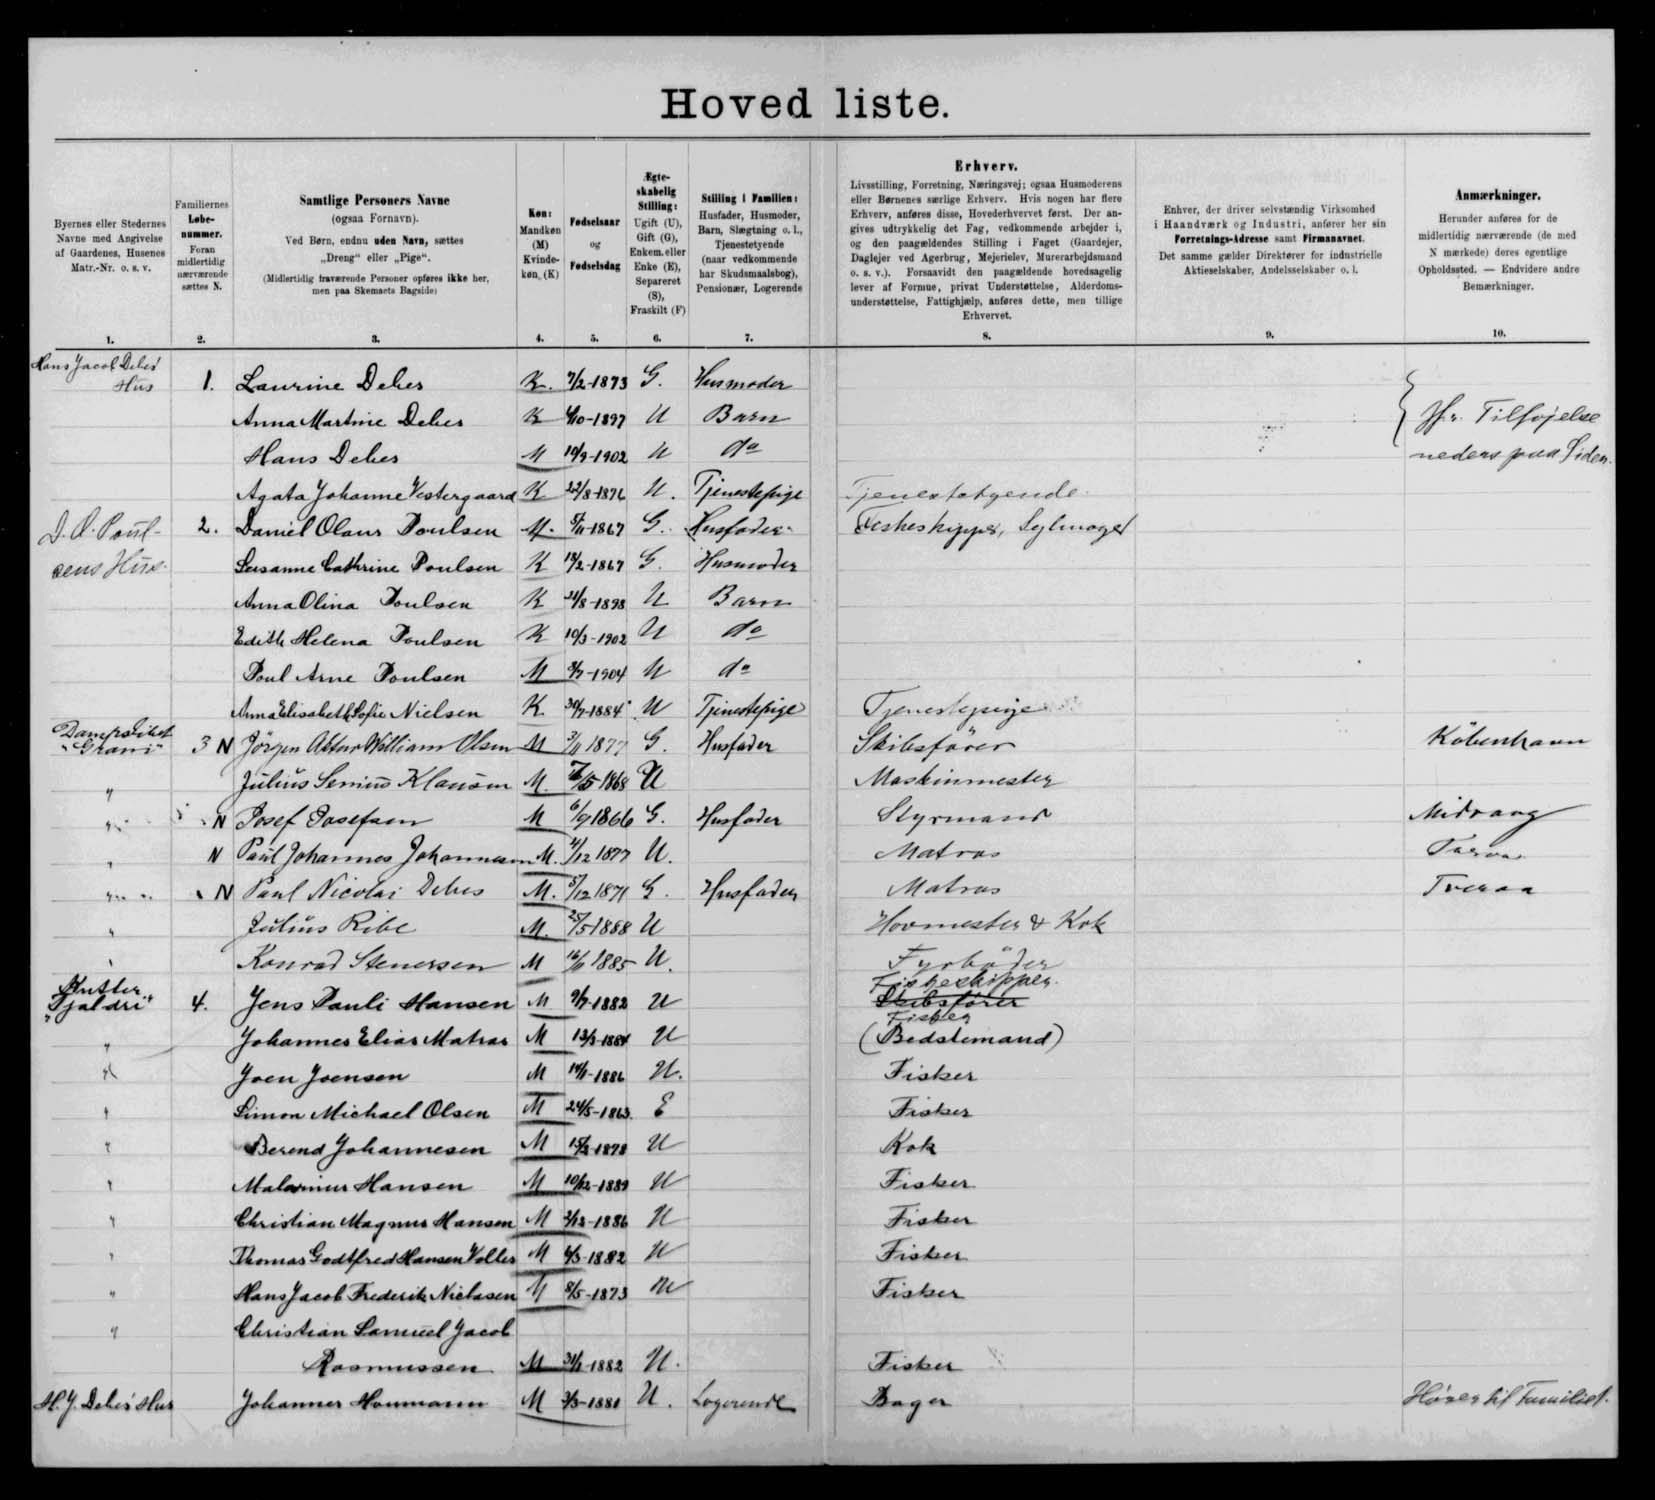 Hoved liste.
Byernes eller Stedernes Navne med Angivelse af Gaardenes, Husenes Matr.-Nr. o. s. v.
Familiernes Løbenummer. Foran midlertidig nærværende sættes N.
Samtlige Personers Navne (ogsaa Fornavn). Ved Børn, endnu uden Navn, sættes „Dreng" eller „Pige". (Midlertidig fraværende Personer opføres ikke her, men paa Skemaets Bagside)
Køn: Mandkøn (M) Kvindekøn (K)
Fødselsaar og Fødselsdag
Ægteskabelig Stilling: Ugift (U), Gift (G), Enkem. eller Enke (E), Separeret (S), Fraskilt (F)
Stilling i Familien: Husfader, Husmoder, Barn, Slægtning o. l., Tjenestetyende (naar vedkommende har Skudsmaalsbog), Pensionær, Logerende
Erhverv. Livsstilling, Forretning, Næringsvej; ogsaa Husmoderens eller Børnenes særlige Erhverv. Hvis nogen har flere Erhverv, anføres disse, Hovederhvervet først. Der angives udtrykkelig det Fag, vedkommende arbejder i, og den paagældendes Stilling i Faget (Gaardejer, Daglejer ved Agerbrug, Mejerielev, Murerarbejdsmand o. s. v.). Forsaavidt den paagældende hovedsagelig lever af Formue, privat Understøttelse, Alderdomsunderstøttelse, Fattighjælp, anføres dette, men tillige Erhvervet.
Enhver, der driver selvstændig Virksomhed i Haandværk og Industri, anfører her sin Forretnings-Adresse samt Firmanavnet. Det samme gælder Direktører for industrielle Aktieselskaber, Andelsselskaber o. l.
Anmærkninger. Herunder anføres for de midlertidig nærværende (de med N mærkede) deres egentlige Opholdssted. — Endvidere andre Bemærkninger.
1. 2. 3. 4. 5. 6. 7. 8. 9. 10.
Hans Jacob Debes' Hus 1. Laurine Debes K. 7/2-1873 G. Husmoder
Anna Martine Debes K 4/10-1897 U Barn Jfr. Tilføjelse
Hans Debes M 19/9-1902 U do nederst paa Siden.
Agata Johanne Vestergaard K 22/8-1876 U. Tjenestepige Tjenestetyende
D. O. Poulsens Hus. 2. Daniel Olaus Poulsen M. 5/11-1867 G. Husfader Fiskeskipper, Sejlmager
Susanne Cathrine Poulsen K 18/2-1867 G. Husmoder
Anna Olina Poulsen K 21/8-1898 U Barn
Edith Helena Poulsen K 10/3-1902 U do
Poul Arne Poulsen M 3/7-1904 U do
Anna Elisabeth Sofie Nielsen K 30/7-1884 U Tjenestepige Tjenestepige
Dampskibet "Grani" 3 N Jörgen William Olsen M 3/11 1877 G. Husfader Skibsfører København
" Julius Klausen M. 1868 U Maskinmester
N Josef Josefsen M 6/9 1866 G. Husfader Styrmand Midvaag
" N Paul Johannes Johannesen M. 4/12 1877 U. Matros
N Paul Nicolai Debes M. 5/12 1871 G. Husfader Matros Tveraa
" Julius Ribe M. 25/5 1888 U Hovmester & Kok
" Konrad Stenersen M 16/11 1885 U. Fyrbøder
Kutter "Tjaldri" 4. Jens Pauli Hansen M 9/7-1882 U Fiskeskipper. Skibsfører
" Johannes Elias Matras M 13/3-1884 U Fisker (Bedstemand)
" Joen Joensen M 14/1-1886 U. Fisker
" Simon Michael Olsen M 24/5-1863 E Fisker
" Berend Johannesen M 15/2-1878 U Kok
" Malvinus Hansen M 10/12-1889 U Fisker
" Christian Magnus Hansen M 2/12-1886 U Fisker
" Thomas Godtfred Hansen Volles M 4/3-1882 U Fisker
" Hans Jacob Frederik Niclasen M 8/5-1873 U Fisker
" Christian Samuel Jacob
Rasmussen M 31/1-1882 U. Fisker
H. J. Debes' Hus Johannes Houmann M 3/3-1881 U. Logerende Bager Hører til Familie 1.